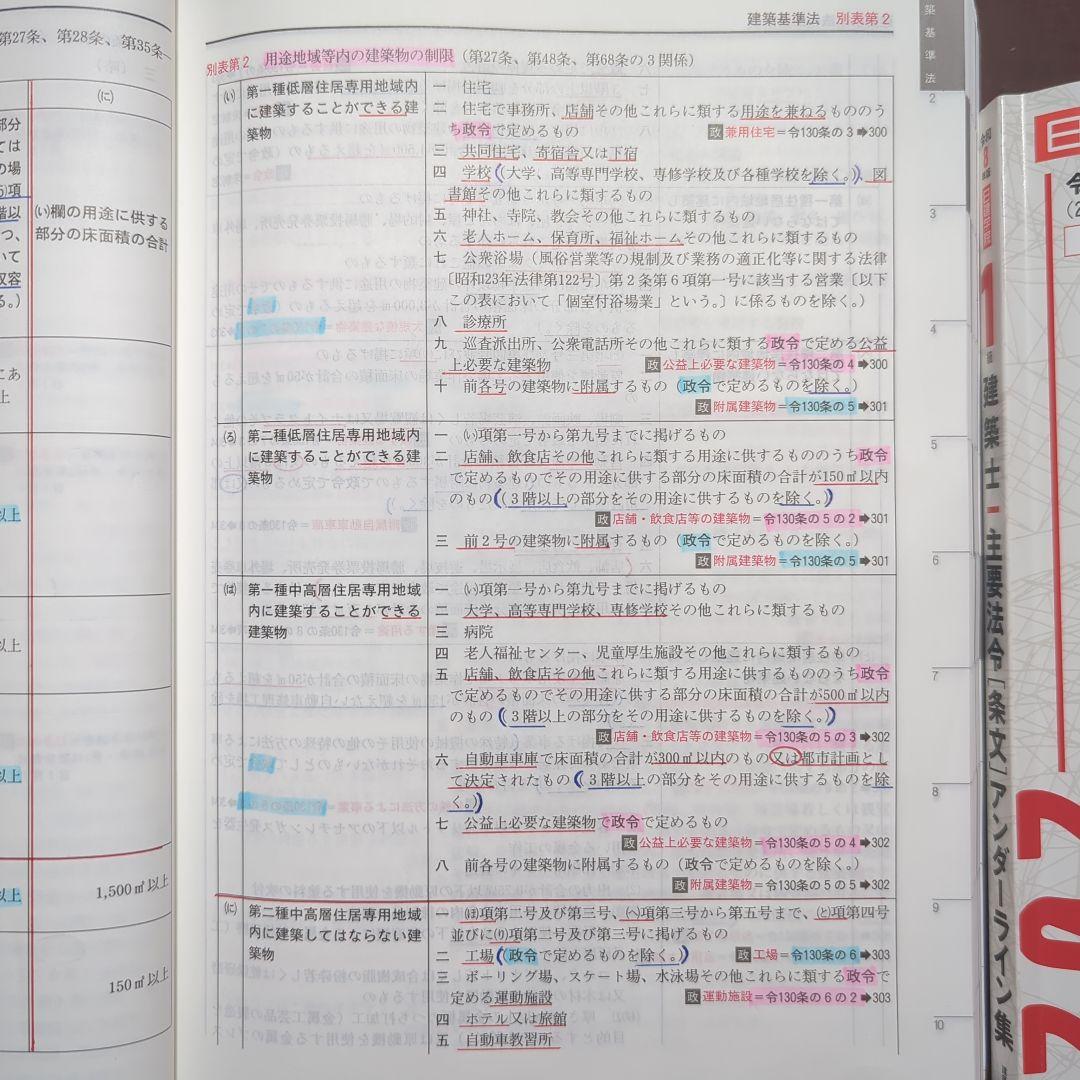 第27条、第28条、第35条
㈡
部分
ては
の場
項
階以
つ、
いて
収容
る。)
㈠欄の用途に供する
部分の床面積の合計
にあ
上
以上
以上
以上
以上
1,500㎡以上
150㎡以上
建築基準法 別表第2
別表第2 用途地域等内の建築物の制限(第27条、第48条、第68条の3関係)
(い) 第一種低層住居専用地域内に建築することができる建築物
一 住宅
二 住宅で事務所、店舗その他これらに類する用途を兼ねるもののうち政令で定めるもの
政 兼用住宅=令130条の3➡300
三 共同住宅、寄宿舎又は下宿
四 学校(大学、高等専門学校、専修学校及び各種学校を除く。)、図書館その他これらに類するもの
五 神社、寺院、教会その他これらに類するもの
六 老人ホーム、保育所、福祉ホームその他これらに類するもの
七 公衆浴場(風俗営業等の規制及び業務の適正化等に関する法律〔昭和23年法律第122号〕第2条第6項第一号に該当する営業〔以下この表において「個室付浴場業」という。〕に係るものを除く。)
八 診療所
九 巡査派出所、公衆電話所その他これらに類する政令で定める公益上必要な建築物
政 公益上必要な建築物=令130条の4➡300
十 前各号の建築物に附属するもの(政令で定めるものを除く。)
政 附属建築物=令130条の5➡301
(ろ) 第二種低層住居専用地域内に建築することができる建築物
一 (い)項第一号から第九号までに掲げるもの
二 店舗、飲食店その他これらに類する用途に供するもののうち政令で定めるものでその用途に供する部分の床面積の合計が150㎡以内のもの(3階以上の部分をその用途に供するものを除く。)
政 店舗・飲食店等の建築物=令130条の5の2➡301
三 前2号の建築物に附属するもの(政令で定めるものを除く。)
政 附属建築物=令130条の5➡301
(は) 第一種中高層住居専用地域内に建築することができる建築物
一 (い)項第一号から第九号までに掲げるもの
二 大学、高等専門学校、専修学校その他これらに類するもの
三 病院
四 老人福祉センター、児童厚生施設その他これらに類するもの
五 店舗、飲食店その他これらに類する用途に供するもののうち政令で定めるものでその用途に供する部分の床面積の合計が500㎡以内のもの(3階以上の部分をその用途に供するものを除く。)
政 店舗・飲食店等の建築物=令130条の5の3➡302
六 自動車車庫で床面積の合計が300㎡以内のもの又は都市計画として決定されたもの(3階以上の部分をその用途に供するものを除く。)
七 公益上必要な建築物で政令で定めるもの
政 公益上必要な建築物=令130条の5の4➡302
八 前各号の建築物に附属するもの(政令で定めるものを除く。)
政 附属建築物=令130条の5の5➡302
(に) 第二種中高層住居専用地域内に建築してはならない建築物
一 (ほ)項第二号及び第三号、(へ)項第三号から第五号まで、(と)項第四号並びに(り)項第二号及び第三号に掲げるもの
二 工場(政令で定めるものを除く。)
政 工場=令130条の6➡303
三 ボーリング場、スケート場、水泳場その他これらに類する政令で定める運動施設
政 運動施設=令130条の6の2➡303
四 ホテル又は旅館
五 自動車教習所
築基準法
2
3
4
5
6
7
8
9
10
1級建築士 主要法令[条文]アンダーライン集